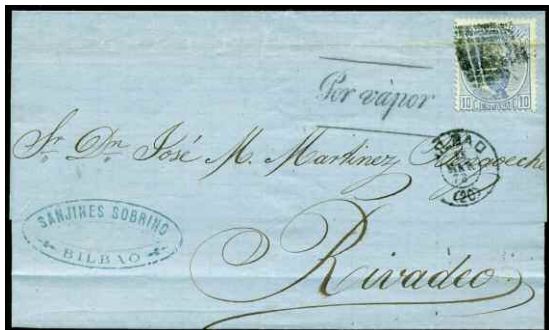 Por vapor
10 10
Sr. Dn. José M. Martinez
BILBAO
MAR
(20)
SANJINES SOBRINO
BILBAO
Rivadeo